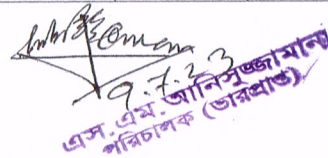 ৯.৭.২৩
এস. এম. আনিসুজ্জামান
পরিচালক (ভারপ্রাপ্ত)